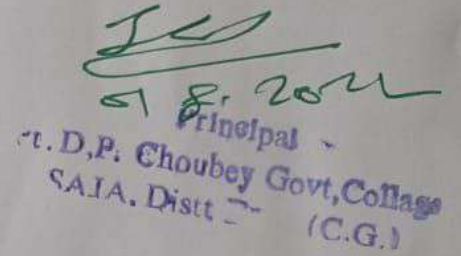 8. 2022
Principal
t. D.P. Choubey Govt, Collage
SAJA. Distt - (C.G.)